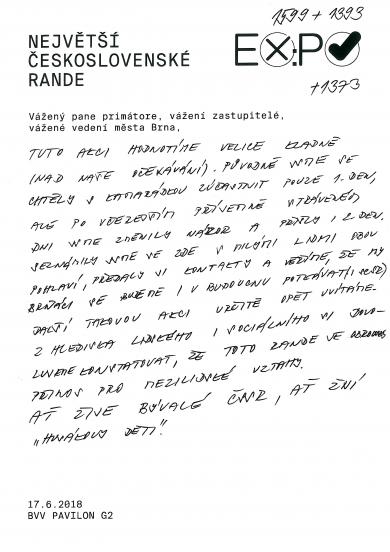 1599 + 1393
NEJVĚTŠÍ
ČESKOSLOVENSKÉ
RANDE
EXPO
+1373
Vážený pane primátore, vážení zastupitelé,
vážené vedení města Brna,
TUTO AKCI HODNOTÍME VELICE KLADNĚ
(NAD NAŠE OČEKÁVÁNÍ). PŮVODNĚ JSME SE
CHTĚLY S KAMARÁDKOU ZÚČASTNIT POUZE 1. DEN,
ALE PO VČEREJŠÍM PŘÍJEMNĚ STRÁVENÉM
DNI JSME ZMĚNILY NÁZOR A PŘIŠLY I 2. DEN,
SEZNÁMILY JSME SE ZDE S MILÝMI LIDMI OBOU
POHLAVÍ, PŘEDALY SI KONTAKTY A VĚŘÍME, ŽE MY
BRŇÁCI SE BUDEME I V BUDOUCNU POTKÁVAT
DALŠÍ TAKOVOU AKCI URČITĚ OPĚT UVÍTÁME.
Z HLEDISKA LIDSKÉHO I SOCIÁLNÍHO SI DOVO-
LUJEME KONSTATOVAT, ŽE TOTO RANDE JE OBROVSKÝ
PŘÍNOS PRO MEZILIDSKÉ VZTAHY.
AŤ ŽIJE BÝVALÉ ČSSR, AŤ ŽIJÍ
„HUSÁKOVY DĚTI".
17.6.2018
BVV PAVILON G2